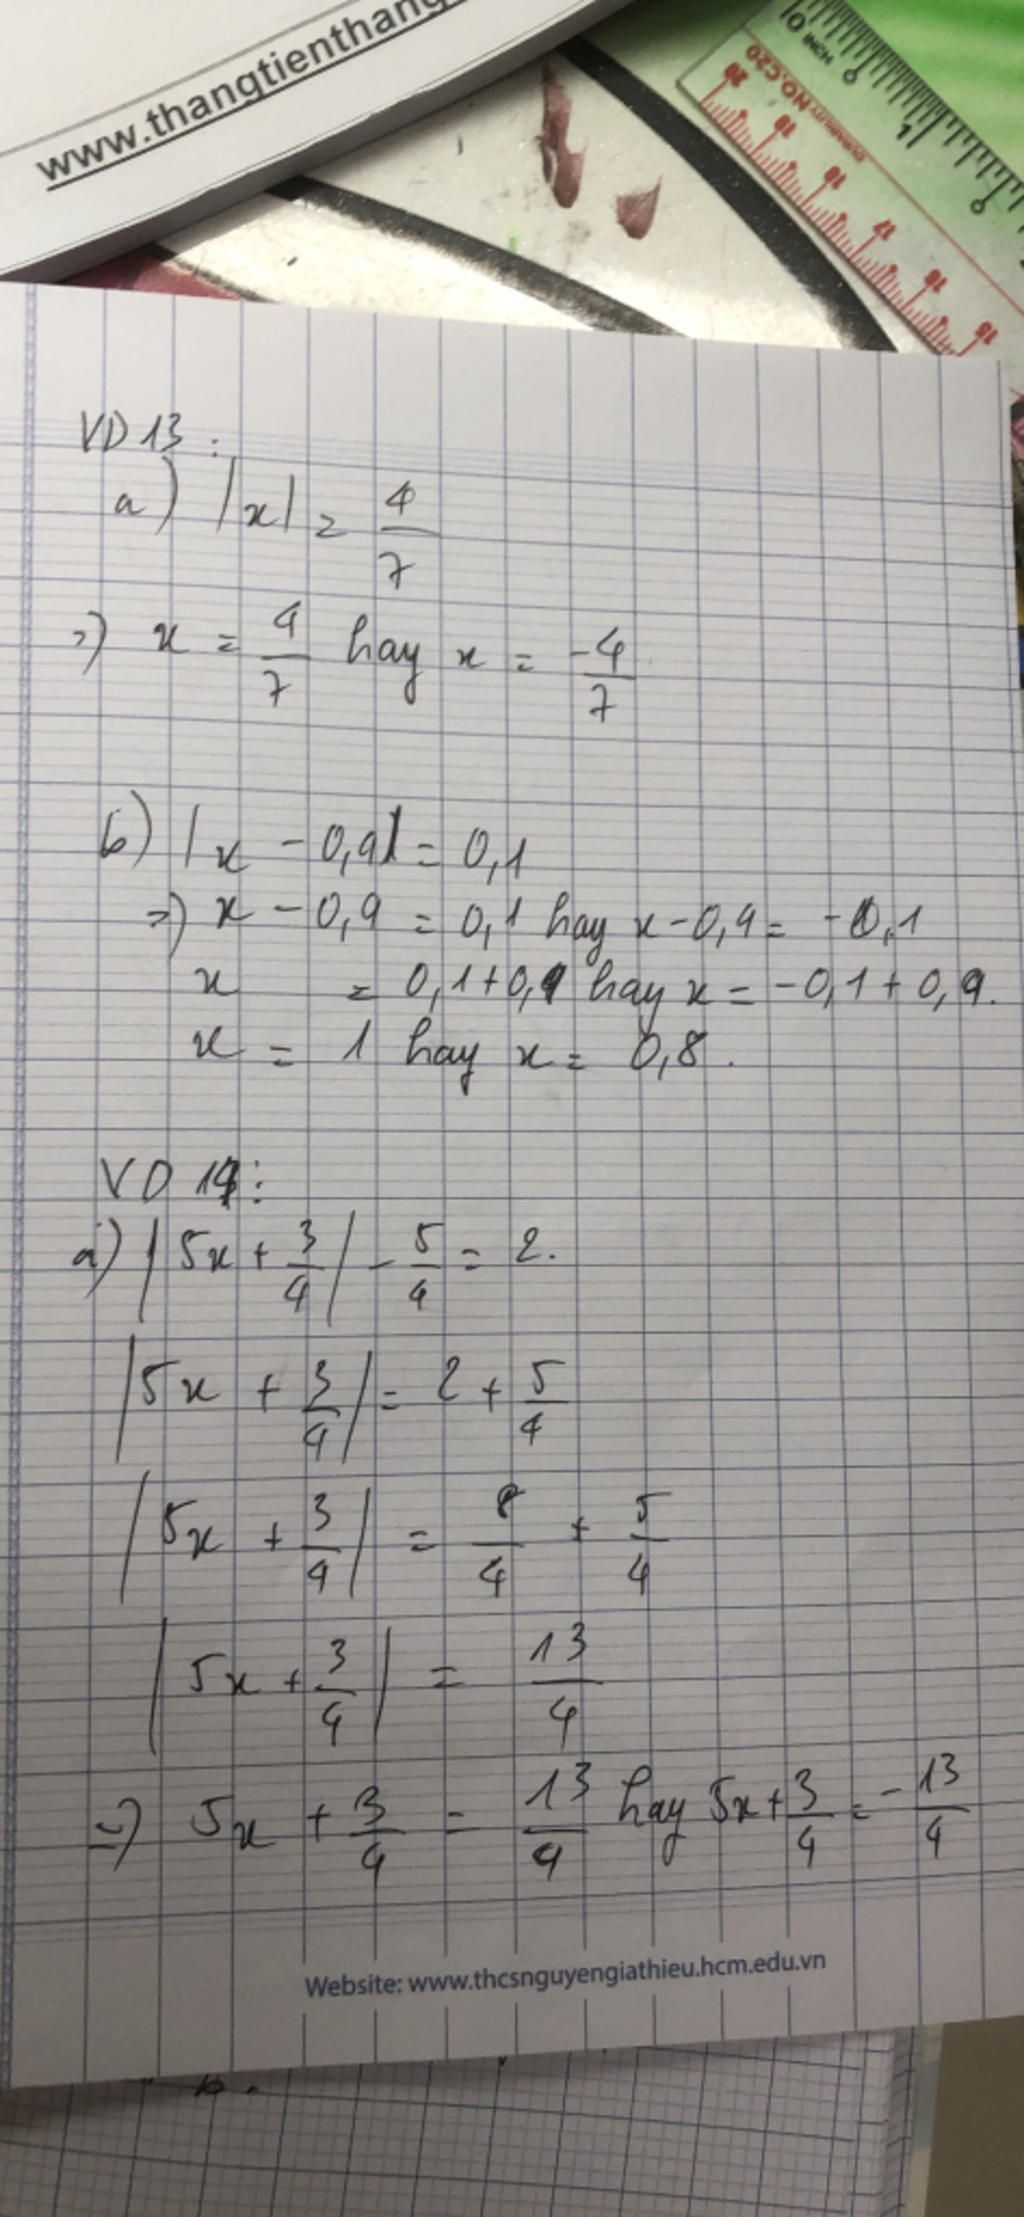 www.thangtienthang
INCH
DURABILITY NO.C20
0 1
20 19 18 17 16 15
VD 13 :
a) |x| = 4/7
=) x = 4/7 hay x = -4/7
b) |x - 0,9| = 0,1
=) x - 0,9 = 0,1 hay x - 0,9 = - 0,1
x = 0,1 + 0,9 hay x = - 0,1 + 0,9.
x = 1 hay x = 0,8.
VD 14 :
a) |5x + 3/4| - 5/4 = 2.
|5x + 3/4| = 2 + 5/4
|5x + 3/4| = 8/4 + 5/4
|5x + 3/4| = 13/4
=) 5x + 3/4 = 13/4 hay 5x + 3/4 = - 13/4
Website: www.thcsnguyengiathieu.hcm.edu.vn